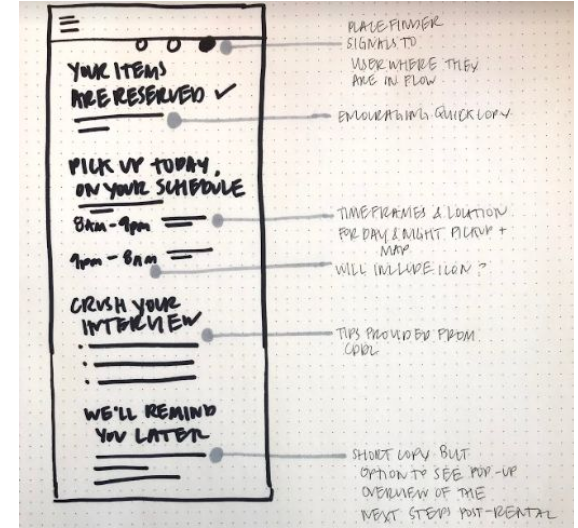 YOUR ITEMS
ARE RESERVED ✓
PICK UP TODAY,
ON YOUR SCHEDULE
8AM-9PM
9PM - 8AM
CRUSH YOUR
INTERVIEW
WE'LL REMIND
YOU LATER
PLACE FINDER
SIGNALS TO
USER WHERE THEY
ARE IN FLOW
ENCOURAGING QUICK COPY
TIMEFRAMES & LOCATION
FOR DAY & NIGHT PICKUP +
MAP
WILL INCLUDE ICON?
TIPS PROVIDED FROM
SHORT COPY BUT
OPTION TO SEE POP-UP
OVERVIEW OF THE
NEXT STEPS POST-RENTAL